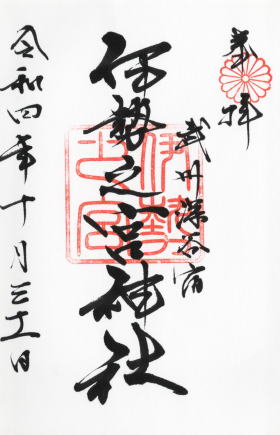 奉拝
武州深谷宿
伊勢之宮神社
令和四年十月三十一日
伊勢
之宮